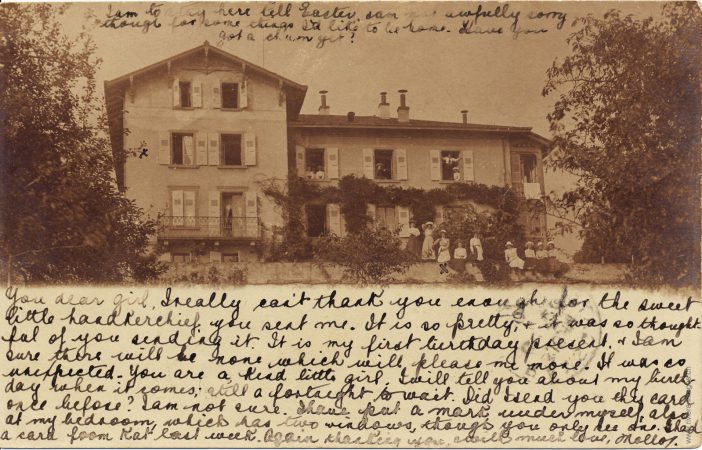 I am to stay here till Easter, am not awfully sorry
though for some things I'd like to be home. Have you
got a chum yet?
x
x
You dear girl, I really can't thank you enough for the sweet
little handkerchief you sent me. It is so pretty, & it was so thought-
ful of you sending it. It is my first birthday present, & I am
sure there will be none which will please me more. It was so
unexpected. You are a kind little girl. I will tell you about my birth
day when it comes; still a fortnight to wait. Did I send you this card
once before? I am not sure. I have put a mark under myself, also
at my bedroom, which has two windows, though you only see one. I had
a card from Kat last week. Again thanking you, with much love,